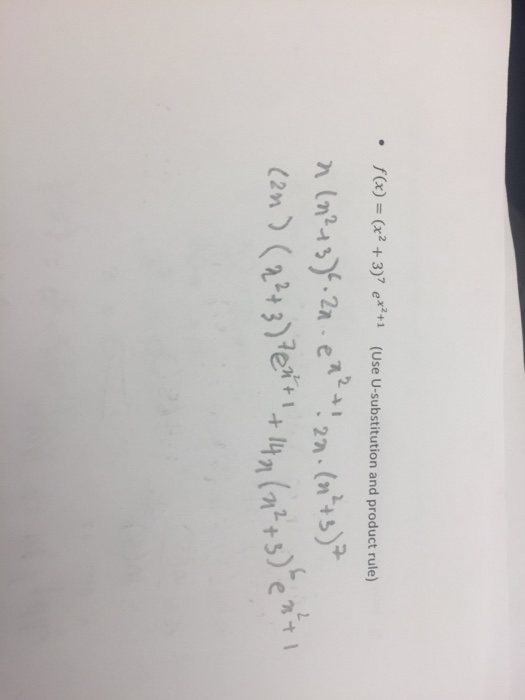 • f(x) = (x² + 3)⁷ e^(x²+1) (Use U-substitution and product rule)
x (x²+3)⁶ · 2x · e^(x²+1) · 2x · (x²+3)⁷
(2x) (x²+3)⁷ e^(x²+1) + 14x (x²+3)⁶ e^(x²+1)